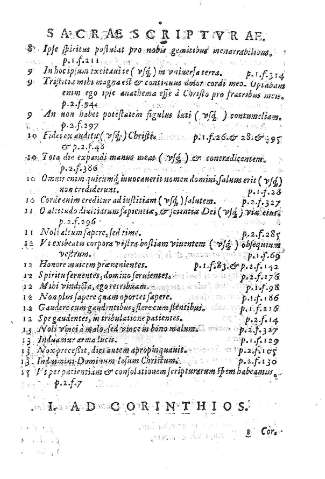 SACRAE SCRIPTVRAE.
8 Ipse spiritus postulat pro nobis gemitibus inenarrabilibus,
p.1.f.211
9 In hoc ipsum excitaui te (vsq;) in vniuersa terra. p.1.f.314
9 Tristitia mihi magna est & continuus dolor cordi meo. Optabam
enim ego ipse anathema esse à Christo pro fratribus meis.
p.2.f.94
9 An non habet potestatem figulus luti (vsq;) contumeliam.
p.2.f.297
10 Fides ex auditu (vsq;) Christi. p.1.f.26.& 28.& 95
& p.2.f.46
10 Tota die expandi manus meas (vsq;) & contradicentem.
p.2.f.366
10 Omnis enim quicumq; inuocauerit nomen domini, saluus erit (vsq;)
non crediderunt. p.1.f.26
10 Corde enim creditur ad iustitiam (vsq;) salutem. p.2.f.327
11 O altitudo diuitiarum sapientiæ, & scientiæ Dei (vsq;) viæ eius.
p.2.f.296
11 Noli altum sapere, sed time. p.2.f.285
12 Vt exhibeatis corpora vestra hostiam viuentem (vsq;) obsequium
vestrum. p.1.f.69
12 Honore inuicem præuenientes. p.1.f.83.& p.2.f.142
12 Spiritu feruentes, domino seruientes. p.2.f.176
12 Mihi vindicta, ego retribuam. p.1.f.98
12 Non plus sapere quam oportet sapere. p.1.f.186
12 Gaudere cum gaudentibus, flere cum flentibus. p.1.f.216
12 Spe gaudentes, in tribulatione patientes. p.2.f.14
12 Noli vinci à malo, sed vince in bono malum. p.2.f.327
13 Induamur arma lucis. p.1.f.129
13 Nox præcessit, dies autem apropinquauit. p.2.f.105
13 Induimini Dominum Iesum Christum. p.2.f.130
15 Vt per patientiam & consolationem scripturarum spem habeamus.
p.2.f.7
I. AD CORINTHIOS.
8 Cor.